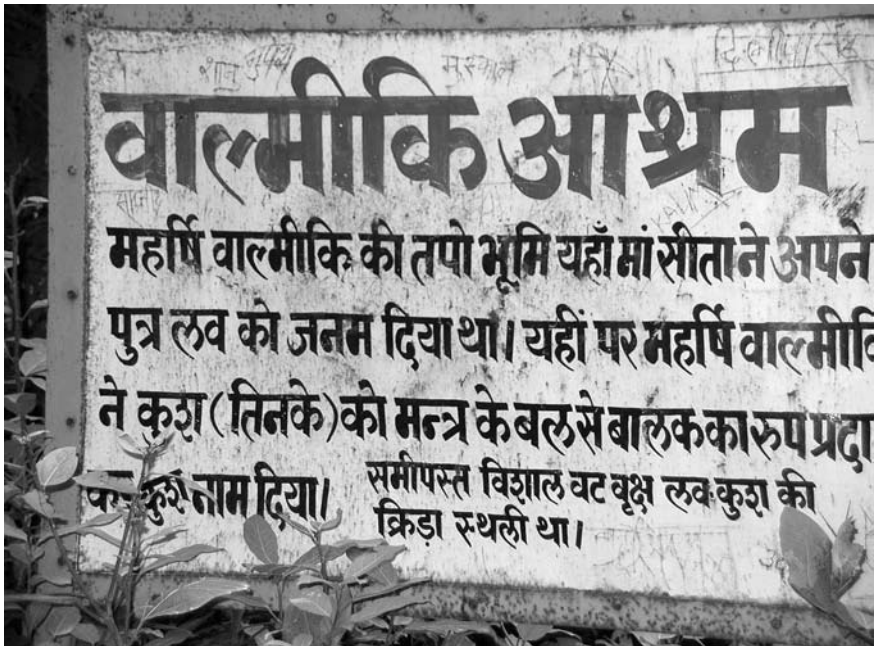 वाल्मीकि आश्रम
महर्षि वाल्मीकि की तपो भूमि यहाँ मां सीता ने अपने
पुत्र लव को जनम दिया था। यहीं पर महर्षि वाल्मीकि
ने कुश (तिनके) को मन्त्र के बल से बालक का रुप प्रदा
कर कुश नाम दिया।
समीपस्त विशाल वट वृक्ष लव कुश की
क्रिड़ा स्थली था।